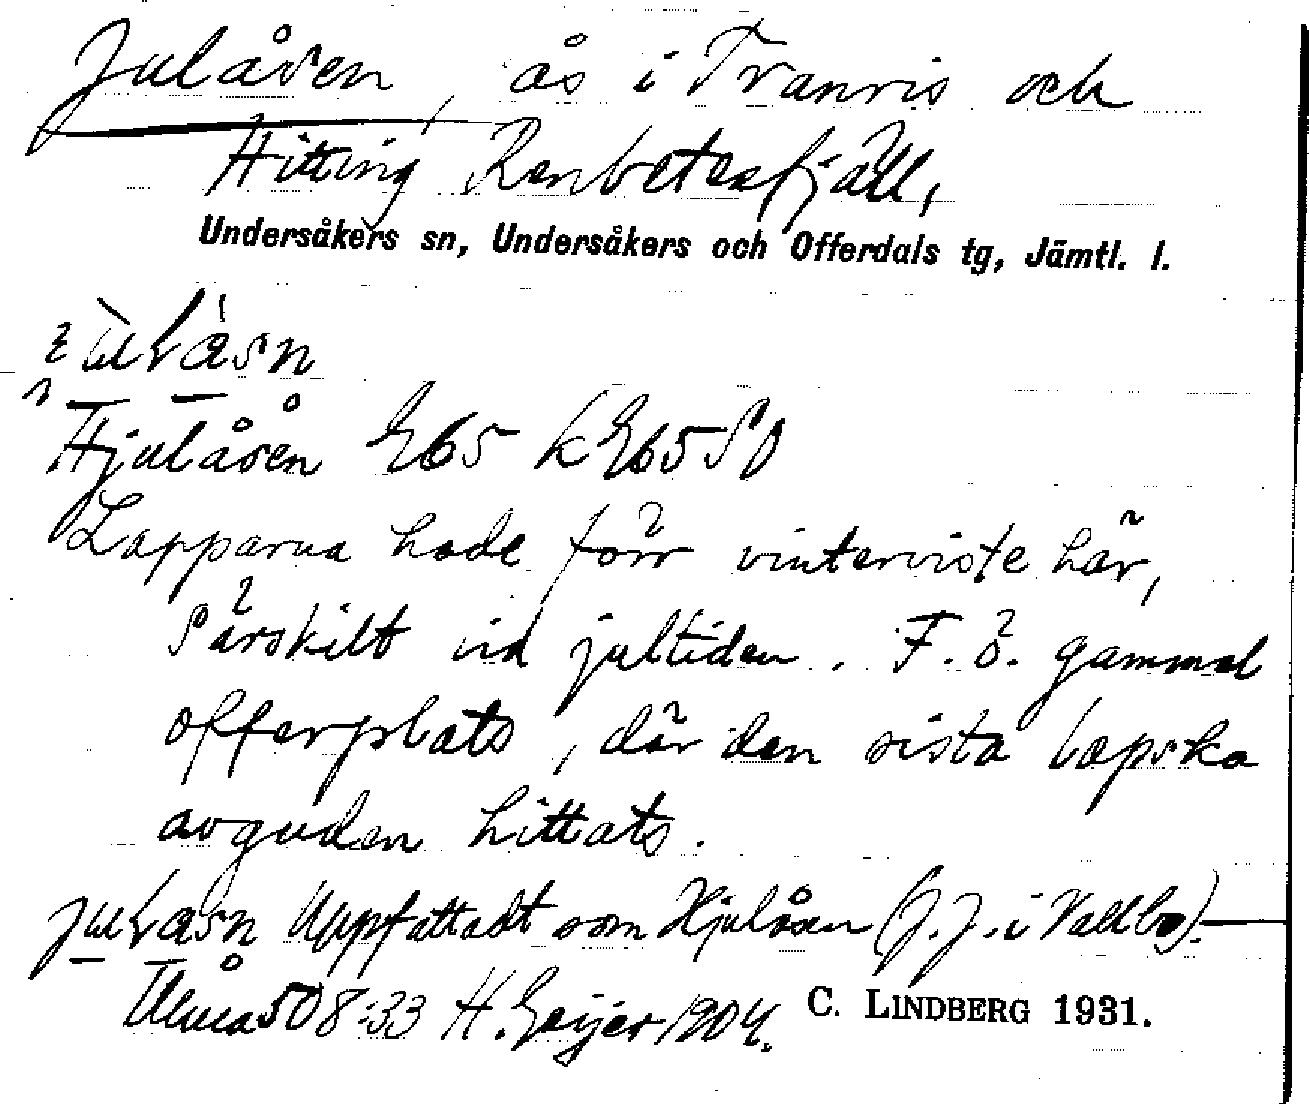 Julåsen, ås i Tranris och
Hitting Renbetesfjäll,
Undersåkers sn, Undersåkers och Offerdals tg, Jämtl. l.
Hjulåsen E65 k E65 SO
Lapparna hade förr vinterviste här,
särskilt vid jultiden. F. ö. gammal
offerplats, där den sista lapska
avguden hittats.
Uppfattadt som Hjulåsen (J. J. i Vallbo).
Ulma 508:33 H. Geijer 1904.
C. LINDBERG 1931.